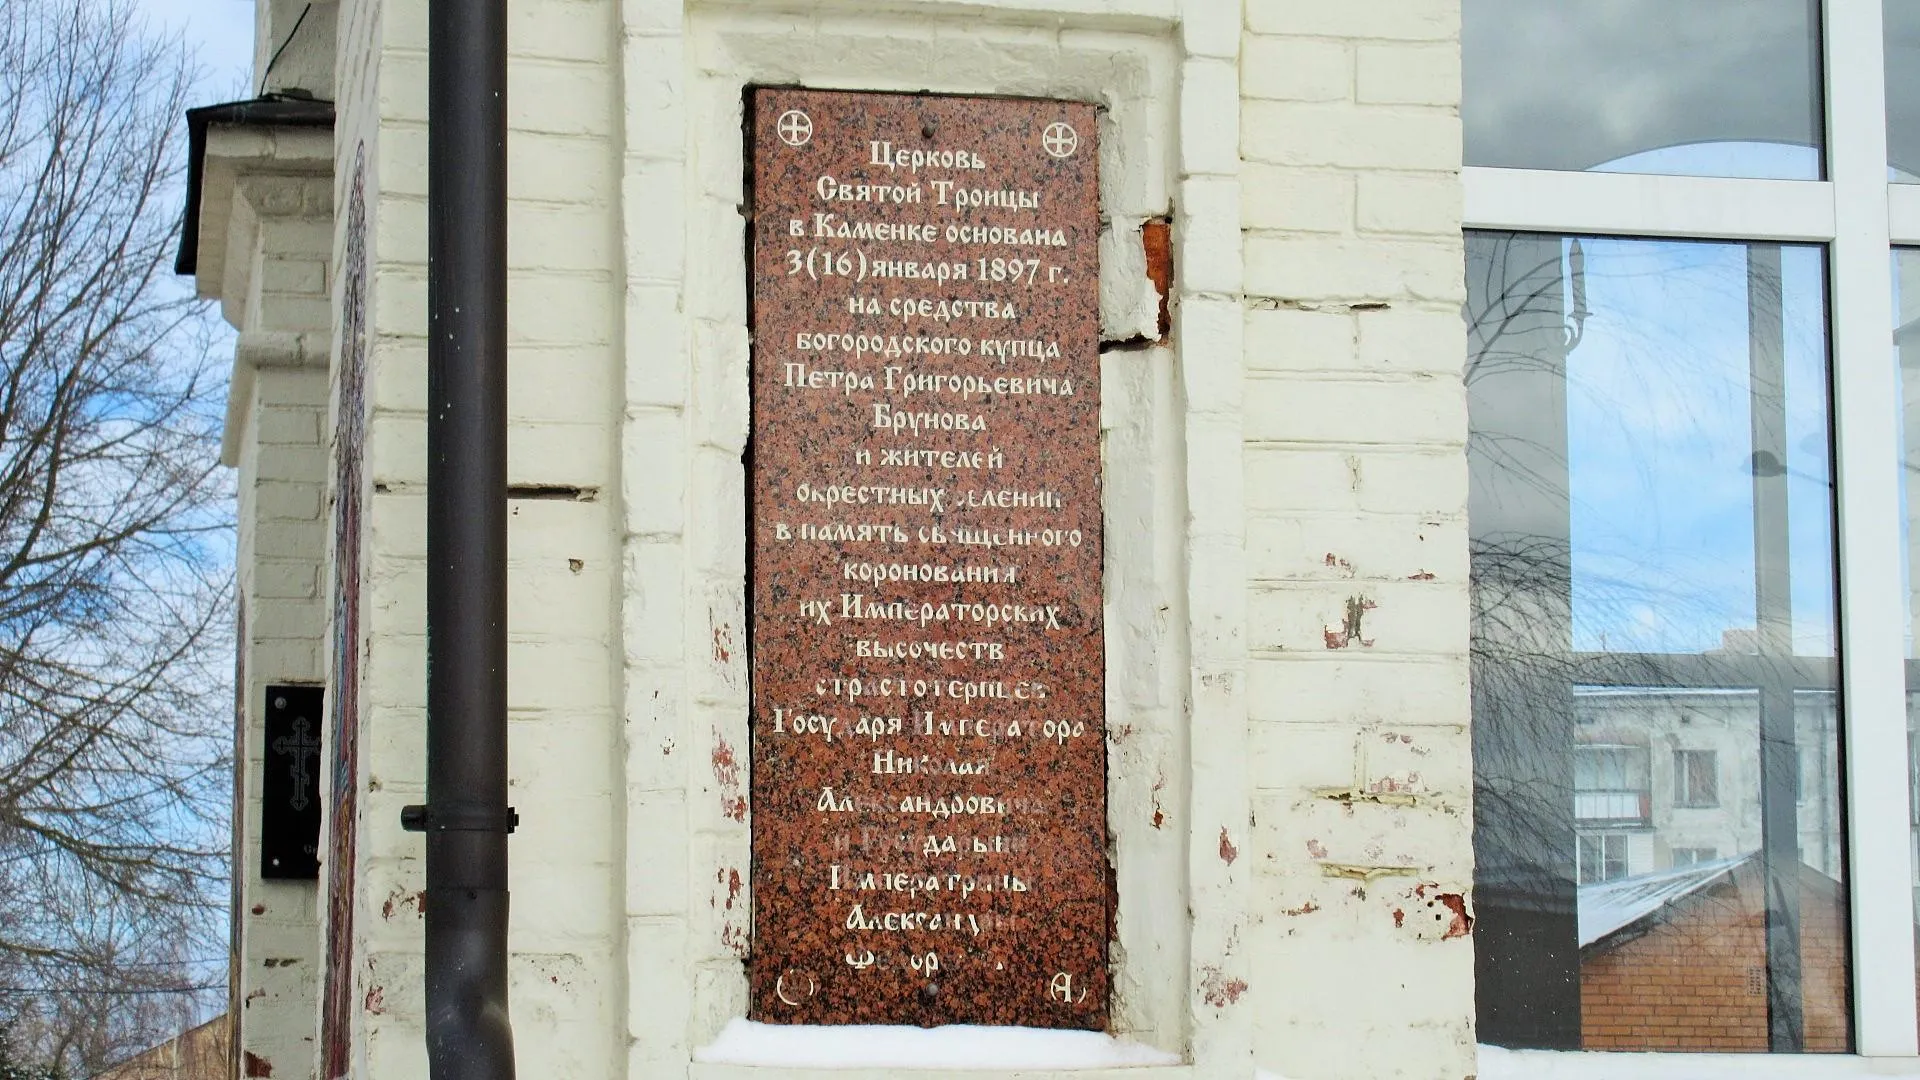 Церковь
Святой Троицы
в Каменке основана
3(16) января 1897 г.
на средства
богородского купца
Петра Григорьевича
Брунова
и жителей
окрестных селений
в память священного
коронования
их Императорских
высочеств
страстотерпцев
Государя Императора
Николая
Александровича
и Государыни
Императрицы
Александры